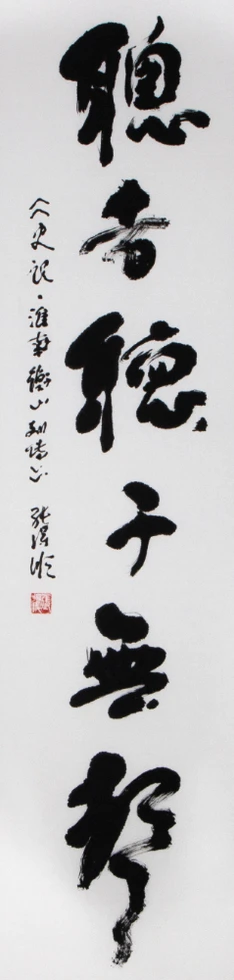 聰者聽于無聲
《史記·淮南衡山列傳》